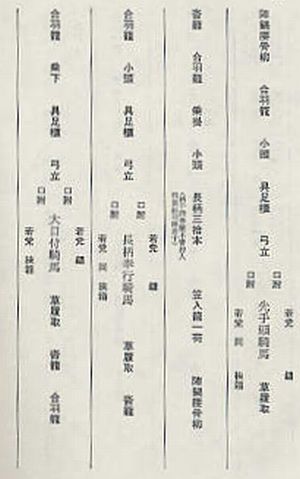 陣鍋腰骨柳 合羽籠 小頭 具足櫃 弓立
口附 若党 鎗
先手頭騎馬 草履取
口附 若党 同 挟箱
沓籠 合羽籠 乗掛 小頭 長柄三拾本
笠入籠一荷 陣鍋腰骨柳
合羽籠 小頭 具足櫃 弓立
口附 若党 鎗
長柄奉行騎馬 草履取 沓籠
口附 若党 同 挟箱
合羽籠 乗下 具足櫃 弓立
口附 若党 鎗
大目付騎馬 草履取 沓籠 合羽籠
口附 若党 挟箱